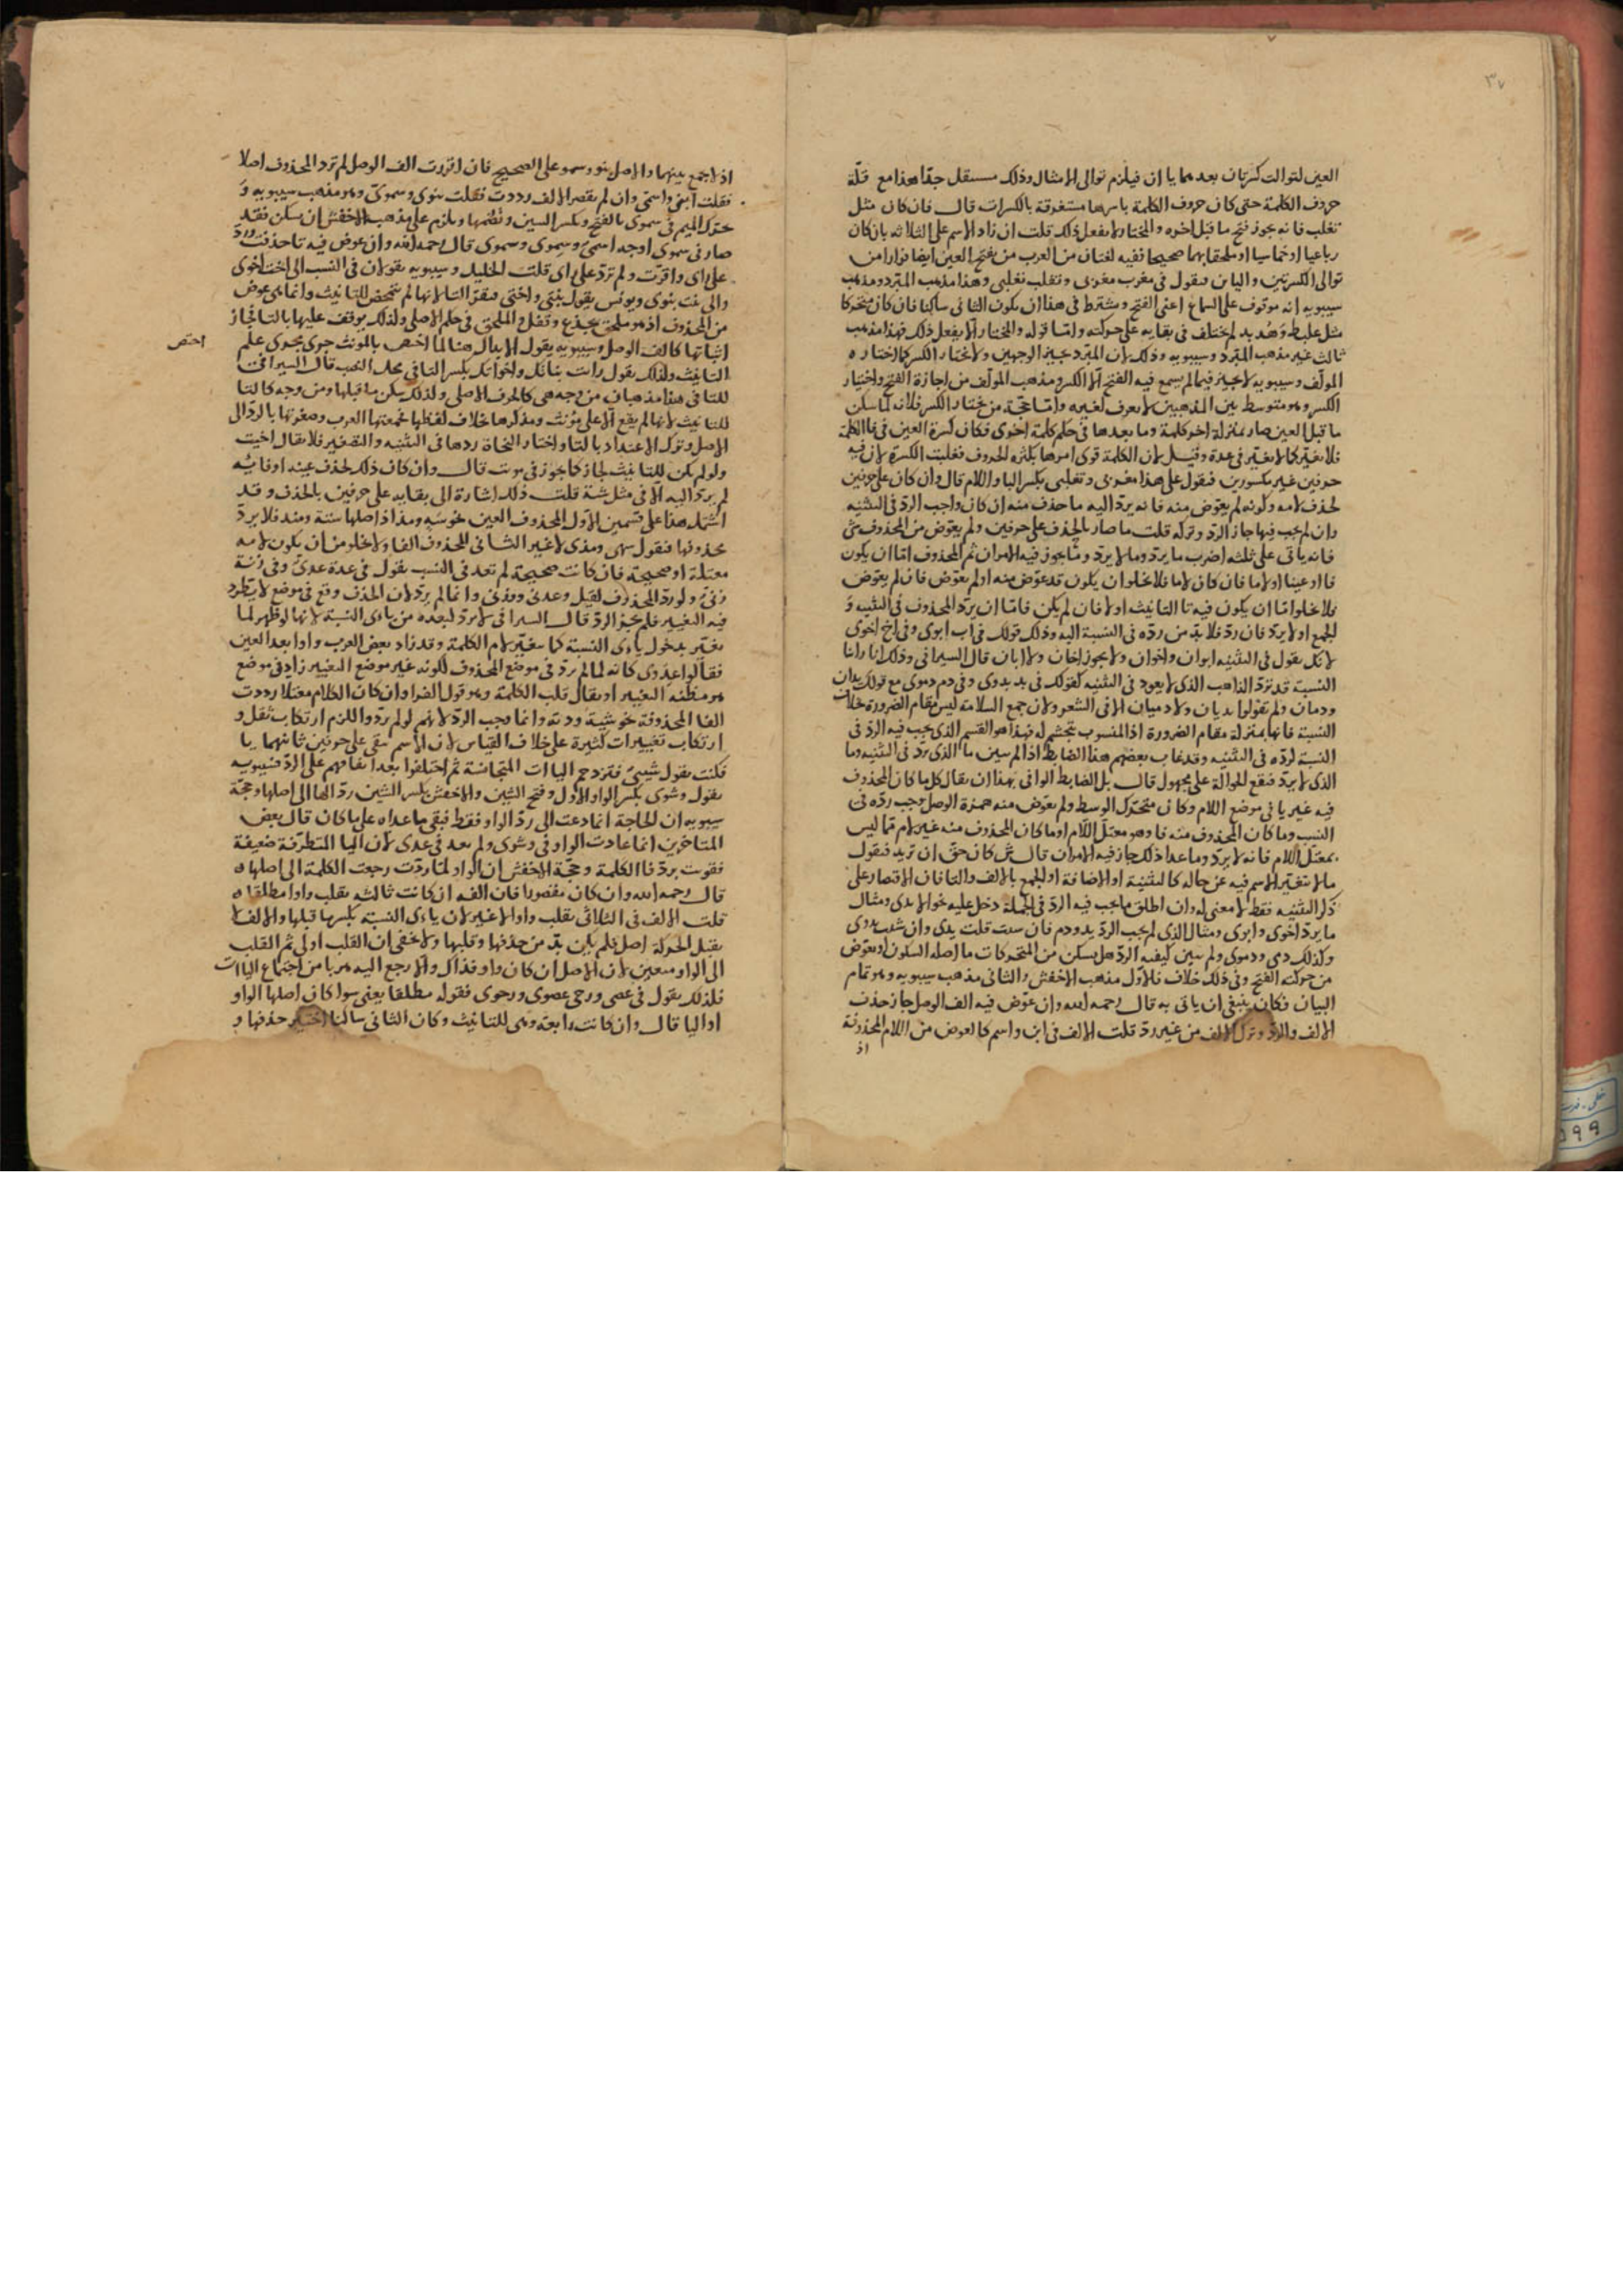 ٣٧
العين لتوالت كسرتان بعدهما يا ان فيلزم توالى الامثال وذلك مستثقل جدّا هذا مع قلّة
حروف الكلمة حتى كان حروف الكلمة باسرها مستغرقة بالكسرات قال فان كان مثل
تغلب فانه يجوز فتح ما قبل اخره والمختار الا يفعل ذلك قلت ان زاد الاسم على الثلاثه بان كان
رباعيا او خماسيا او ملحقا بهما صحيحا ففيه لغتان من العرب من يفتح العين ايضا فرارا من
توالى الكسرتين والياىن فيقول فى مغرب مغربى وتغلب تغلبى وهذا مذهب المبرّد ومذهب
سيبويه انه موقوف على السماع اعنى الفتح ويشترط فى هذا ان يكون الثانى ساكنا فان كان متحركا
مثل علبط وهُدبد لم يختلف فى بقايه على حركته وامّا قوله والمختار الا يفعل ذلك فهذا مذهب
ثالث غير مذهب المبّرد وسيبويه وذلك لان المبّرد يجيز الوجهين ولا يختار الكسر كما اختاره
المولّف وسيبويه لا يجيز فيما لم يسمع فيه الفتح الّا الكسر ومذهب المولّف من اجازة الفتح واختيار
الكسر وهو متوسط بين المذهبين لا يعرف لغيره وامّا حجّة من يختار الكسر فلانه لما سكن
ما قبل العين صار بمنزلة اخر كلمة وما بعدها فى حكم كلمة اخرى فكان كسرة العين فى فا الكلمة
فلا يغيّر كما لا يغيّر فى عدة وقيل لان الكلمة قوى امرها بكثرة الحروف فغلبت الكسرة لان فيه
حرفين غير مكسورين فيقول على هذا مغربى وتغلبى بكسر البا واللام قال وان كان على حرفين
لحذف لامه وكونه لم يعوّض منه فانه يردّ اليه ما حذف منه ان كان واجب الردّ فى التثنيه
وان لم يجب فيها جاز الردّ وتركه قلت ما صار بالحذف على حرفين ولم يعوّض من المحذوف شى
فانه ياتى على ثلثه اضرب ما يردّ وما لا يردّ وما يجوز فيه الامران ثم المحذوف امّا ان يكون
فا او عينا او لاما فان كان لاما فلا يخلو ان يكون قد عوّض منه او لم يعوّض فان لم يعوّض
فلا يخلو امّا ان يكون فيه تا التانيث او لا فان لم يكن فامّا ان يردّ المحذوف فى التثنيه و
الجمع او لا يردّ فان ردّ فلا بدّ من ردّه فى النسبة اليه وذلك قولك فى اب ابوى وفى اخ اخوى
لانك تقول فى التثنيه ابوان واخوان ولا يجوز اخان ولا ابان قال السيرافى وذلك انا راينا
النسبة قد تردّ الذاهب الذى لا يعود فى التثنيه كقولك فى يد يدوى وفى دم دموى مع قولك يدان
ودمان ولم تقولوا يديان ولا دميان الا فى الشعر ولان جمع السلامة ليس مقام الضرورة خلاف
النسبة فانها بمنزلة مقام الضرورة اذ المنسوب يتجشم له فهذا هو القسم الذى يجب فيه الردّ فى
النسبة لردّه فى التثنيه وقد عاب بعضهم هذا الضابط اذ لم يبين ما الذى يردّ فى التثنيه وما
الذى لا يردّ فتقع الحوالة على مجهول قال بل الضابط الوافى بهذا ان يقال كل ما كان المحذوف
فيه غير يا فى موضع اللام وكان متحرّك الوسط ولم يعوّض منه همزة الوصل وجب ردّه فى
النسب وما كان المحذوف منه فا وهو معتلّ اللّام او ما كان المحذوف منه غير لام ممّا ليس
بمعتلّ اللام فانه لا يردّ وما عدا ذلك جاز فيه الامران قال ش كان حقّ ان تريد فيقول
ما لا يتغيّر الاسم فيه عن حاله كالتثنية او الاضافة او الجمع بالالف والتا فان الاقتصار على
ذكر التثنيه فقط لا معنى له وان اطلق ما يجب فيه الردّ فى الجملة دخل عليه نحو الايدى ومثال
ما يردّ اخوى وابوى ومثال الذى لم يجب الردّ يد ودم فان شيت قلت يدى وان شيت يدوى
وكذلك دمى ودموى ولم يبين كيفيه الردّ هل يسكن من المتحركات ما اصله السكون او يعوّض
من حركته الفتح وفى ذلك خلاف فالاول مذهب الاخفش والثانى مذهب سيبويه وهو تمام
البيان فكان ينبغى ان ياتى به قال رحمه الله وان عوّض فيه الف الوصل جاز حذف
الالف والردّ وترك الالف من غير ردّ قلت الالف فى ابن واسم كالعوض من اللام المحذوفة
اذ
اذ لا يجمع بينهما والاصل بنو وسمو على الصحيح فان اقررت الف الوصل لم تردّ المحذوف اصلا
فقلت ابنى واسمى وان لم يقصر الالف رددت فقلت بنوى وسموىّ وهو مذهب سيبويه و
حرّك الميم فى سموى بالفتح وبكسر السين وبضمها ويلزم على مذهب الاخفش ان يسكن فقد
صار فى سموى اوجه اسمى وسِموى وسُموى قال رحمه الله وان عوض فيه تا حذفت ورد
على راى واقرّت ولم تردّ على راى قلت الخليل وسيبويه يقولان فى النسب الى اخت اخوى
والى بنت بنوى ويونس يقول بنتى واختى فيقرّ التا لانها لم تتمحض للتانيث وانما هى عوض
من المحذوف اذ هو ملحق بجذع وقفل والملحق فى حكم الاصلى ولذلك يوقف عليها بالتا فجاز
اثباتها كالف الوصل وسيبويه يقول الابدال هنا لما اختص بالمونث جرى مجرى علم
اختص
التانيث ولذلك يقول رايت بناتك واخواتك بكسر التا فى محل النصب قال السيرافى
للتا فى هذا مذهبان من وجه هى كالحرف الاصلى ولذلك سكن ما قبلها ومن وجه كالتا
للتانيث لانها لم يقع الّا على مؤنث ومذكرها خلاف لفظها فجمعتها العرب وصغرتها بالردّ الى
الاصل وترك الاعتداد بالتا واختار النحاة ردها فى التثنيه والتصغير فلا يقال اخيت
ولو لم يكن للتانيث لجاز كما جوز فى موت قال وان كان ذلك لحذف عينه او فايه
لم يردّ اليه الا فى مثل شية قلت ذلك اشارة الى بقايه على حرفين بالحذف وقد
اشتمل هذا على قسمين الاول المحذوف العين نحو سَهٍ ومذ اذ اصلها سته ومنذ فلا يردّ
محذوفها فتقول سهى ومذى لا غير الثانى المحذوف الفا ولا يخلو من ان يكون لامه
معتلة او صحيحة فان كانت صحيحة لم تعد فى النسب يقول فى عدة عدىّ وفى زنة
زنىّ ولو ردّ المحذوف لقيل وعدى ووزنى وانما لم يردّ لان الحذف وقع فى موضع لا يتطرد
فيه التغيير فلم يجز الردّ قال السيرافى لا يردّ لبعده من ياى النسبة لانها لو ظهر لما
يتغيّر بدخول ياى النسبة كما يتغيّر لام الكلمة وقد زاد بعض العرب واوا بعد العين
فقالوا عدوى كانه لما لم يردّ فى موضع المحذوف لكونه غير موضع التغيير زاد فى موضع
هو مظنه التغيير او يقال قلب الكلمة وهو قول الفرا وان كان الكلام معتلا رددت
الفا المحذوفة نحو شية ودية وانما وجب الردّ لانهم لو لم يردّوا للزم ارتكاب ثقل و
ارتكاب تغييرات كثيرة على خلاف القياس لان الاسم بقى على حرفين ثانيهما يا
فكنت تقول شيىّ فتزدحم اليا ات المتجانسة ثم اختلفوا بعد اتفاقهم على الردّ فسيبويه
يقول وشوى بكسر الواو الاول وفتح الشين والاخفش بكسر الشين ردّ الها الى اصلها وحجّة
سيبويه ان الحاجة انما دعت الى ردّ الواو فقط فبقى ما عداه على ما كان قال بعض
المتاخرين انما عادت الواو فى وشوى ولم يعد فى عدى لان اليا المتطرّفة ضعيفة
فقويت بردّ فا الكلمة وحجّة الاخفش ان الواو لمّا ردّت رجعت الكلمة الى اصلها ه
قال رحمه الله وان كان مقصورا فان الفه ان كانت ثالثه يقلب واوا مطلقا ه
قلت الالف فى الثلاثى يقلب واوا لا غير لان ياءى النسبة بكسر ما قبلها والالف لا
يقبل الحركة اصلا فلم يكن بدّ من حذفها او قلبها ولا يخفى ان القلب اولى ثم القلب
الى الواو متعين لان الاصل ان كان واو فذاك والا رجع اليه هربا من اجتماع اليا ات
فلذلك يقول فى عصى ورحى عصوى ورحوى فقوله مطلقا يعنى سوا كان اصلها الواو
او اليا قال وان كانت رابعة وهى للتانيث وكان الثانى ساكنا اختير حذفها و